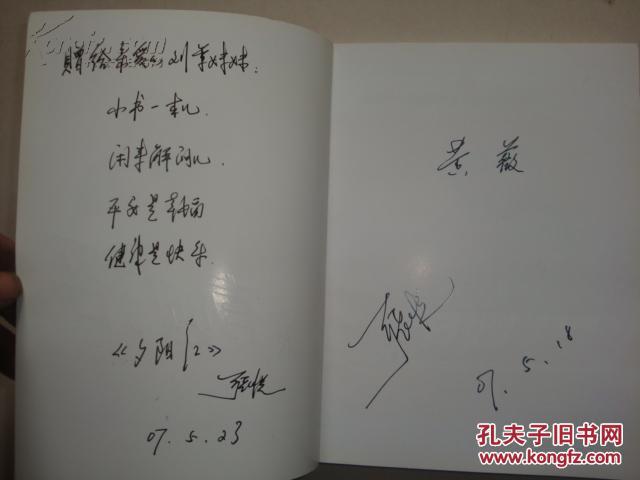 赠给亲爱的刘苇妹妹：
小书一本儿.
闲来解闷儿.
平安是幸福
健康是快乐.
《夕阳红》
07.5.23
黄薇
07.5.18
孔夫子旧书网
www.kongfz.com